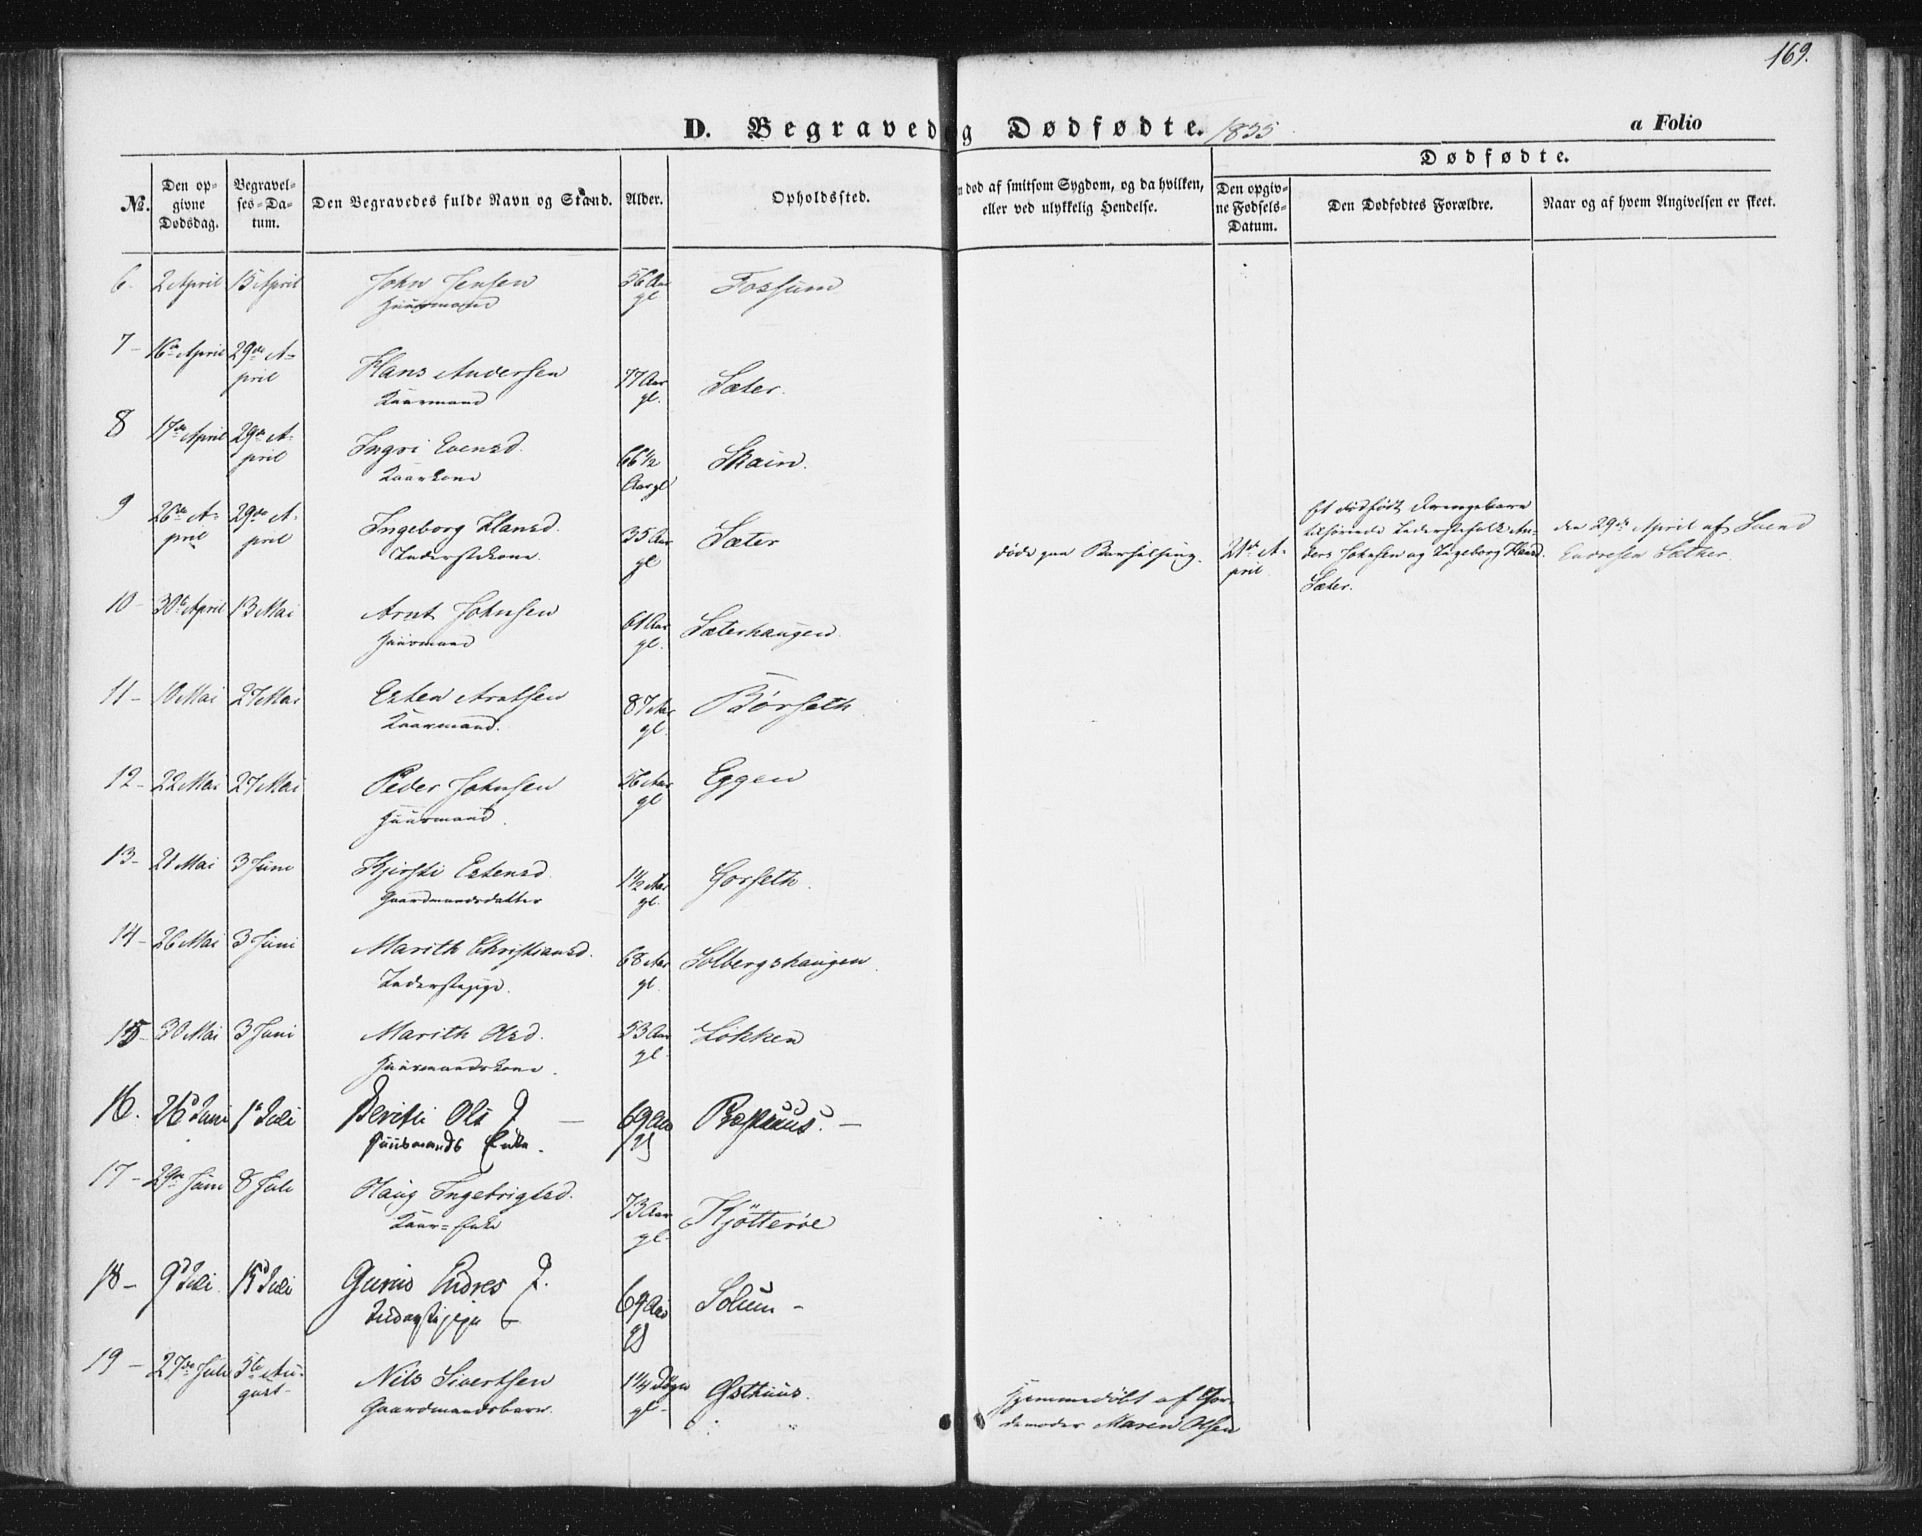 169.
D. Begravede og Dødfødte. 1855 a Folio
Dødfødte.
No. Den opgivne Dødsdag. Begravelses-Datum. Den Begravedes fulde Navn og Stand. Alder. Opholdssted. død af smitsom Sygdom, og da hvilken, eller ved ulykkelig Hendelse. Den opgivne Fødsels-Datum. Den Dødfødtes Forældre. Naar og af hvem Angivelsen er skeet.
6- 2 April 15 April John Jensen 56 Aar gl Fossum
Huusmand
7- 16de April 29de April Hans Andersen 77 Aar gl. Sæter.
Kaarmand
8 17de April 29de April Ingri Evensd. 66 1/2 Aar gl Skain.
Kaarkone
9 26de April 29de April Ingeborg Hansd. 35 Aar gl Sæter døde paa Barselseng. 21de April Et dødfødt Drengebarn tilhørende Inderstefolk Anders Johnsen og Ingeborg Hansd. Sæter. den 29de April af Svend Endresen Sæther.
Inderstekone.
10- 30te April 13 Mai Arnt Johnsen 61 Aar gl. Sæterhaugen.
Huusmand
11- 10 Mai 27 Mai Esten Arntsen 87 Aar gl Børseth.
Kaarmand.
12- 22 Mai 27 Mai Peder Johnsen 56 Aar gl Eggen
Huusmand.
13- 21 Mai 3 Juni Kjersti Estensd. 1 1/2 Aar gl. Gorseth.
Gaardmandsdatter
14- 26 Mai 3 Juni Marith Christiansd. 68 Aar gl. Solbergshaugen.
Inderstepige.
15- 30 Mai 3 Juni Marith Olsd. 53 Aar gl- Løkken
Huusmandskone.
16. 26d Juni 1d Juli Beritte Ols D — 69 Aar gl —
Huusmands Enke.
17- 29de Juni 8 Juli Haug Ingebrigtsd. 73 Aar gl- Kjøtterøe
Kaar-Enke
18- 9d Juli 15d Juli Endres D. 69 Aar gl Solum -
19- 27de Juli 5te August- Nils Sivertsen 1 1/4 Døgn gl- Østhuus. Hjemmedøbt af Gjordemoder Maren Olsen
Gaardmandsbarn.